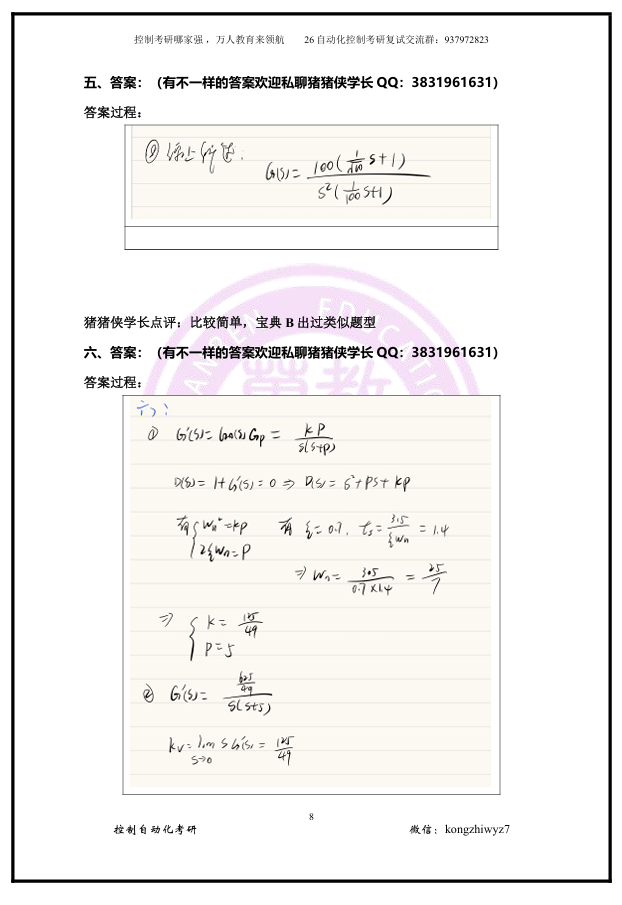 控制考研哪家强，万人教育来领航 26自动化控制考研复试交流群：937972823
五、答案：（有不一样的答案欢迎私聊猪猪侠学长QQ：3831961631）
答案过程：
① 综上所述： G(s)= 100(1/√10 s+1) / s²(1/100 s+1)
猪猪侠学长点评：比较简单，宝典B出过类似题型
六、答案：（有不一样的答案欢迎私聊猪猪侠学长QQ：3831961631）
答案过程：
六：
① G'(s)= Gp = kP / s(s+p)
D(s)= 1+G'(s)=0 ⇒ D(s)= s²+ps+kp
有{ Wn²=kp 有 ξ=0.7, ts= 3.5/ξWn = 1.4
2ξWn=P
⇒ Wn= 3.5/0.7×1.4 = 25/7
⇒ { k= 125/49
P=5
② G'(s)= 625/49 / s(s+5)
kv= lim s→0 sG'(s) = 125/49
8
控制自动化考研 微信：kongzhiwyz7